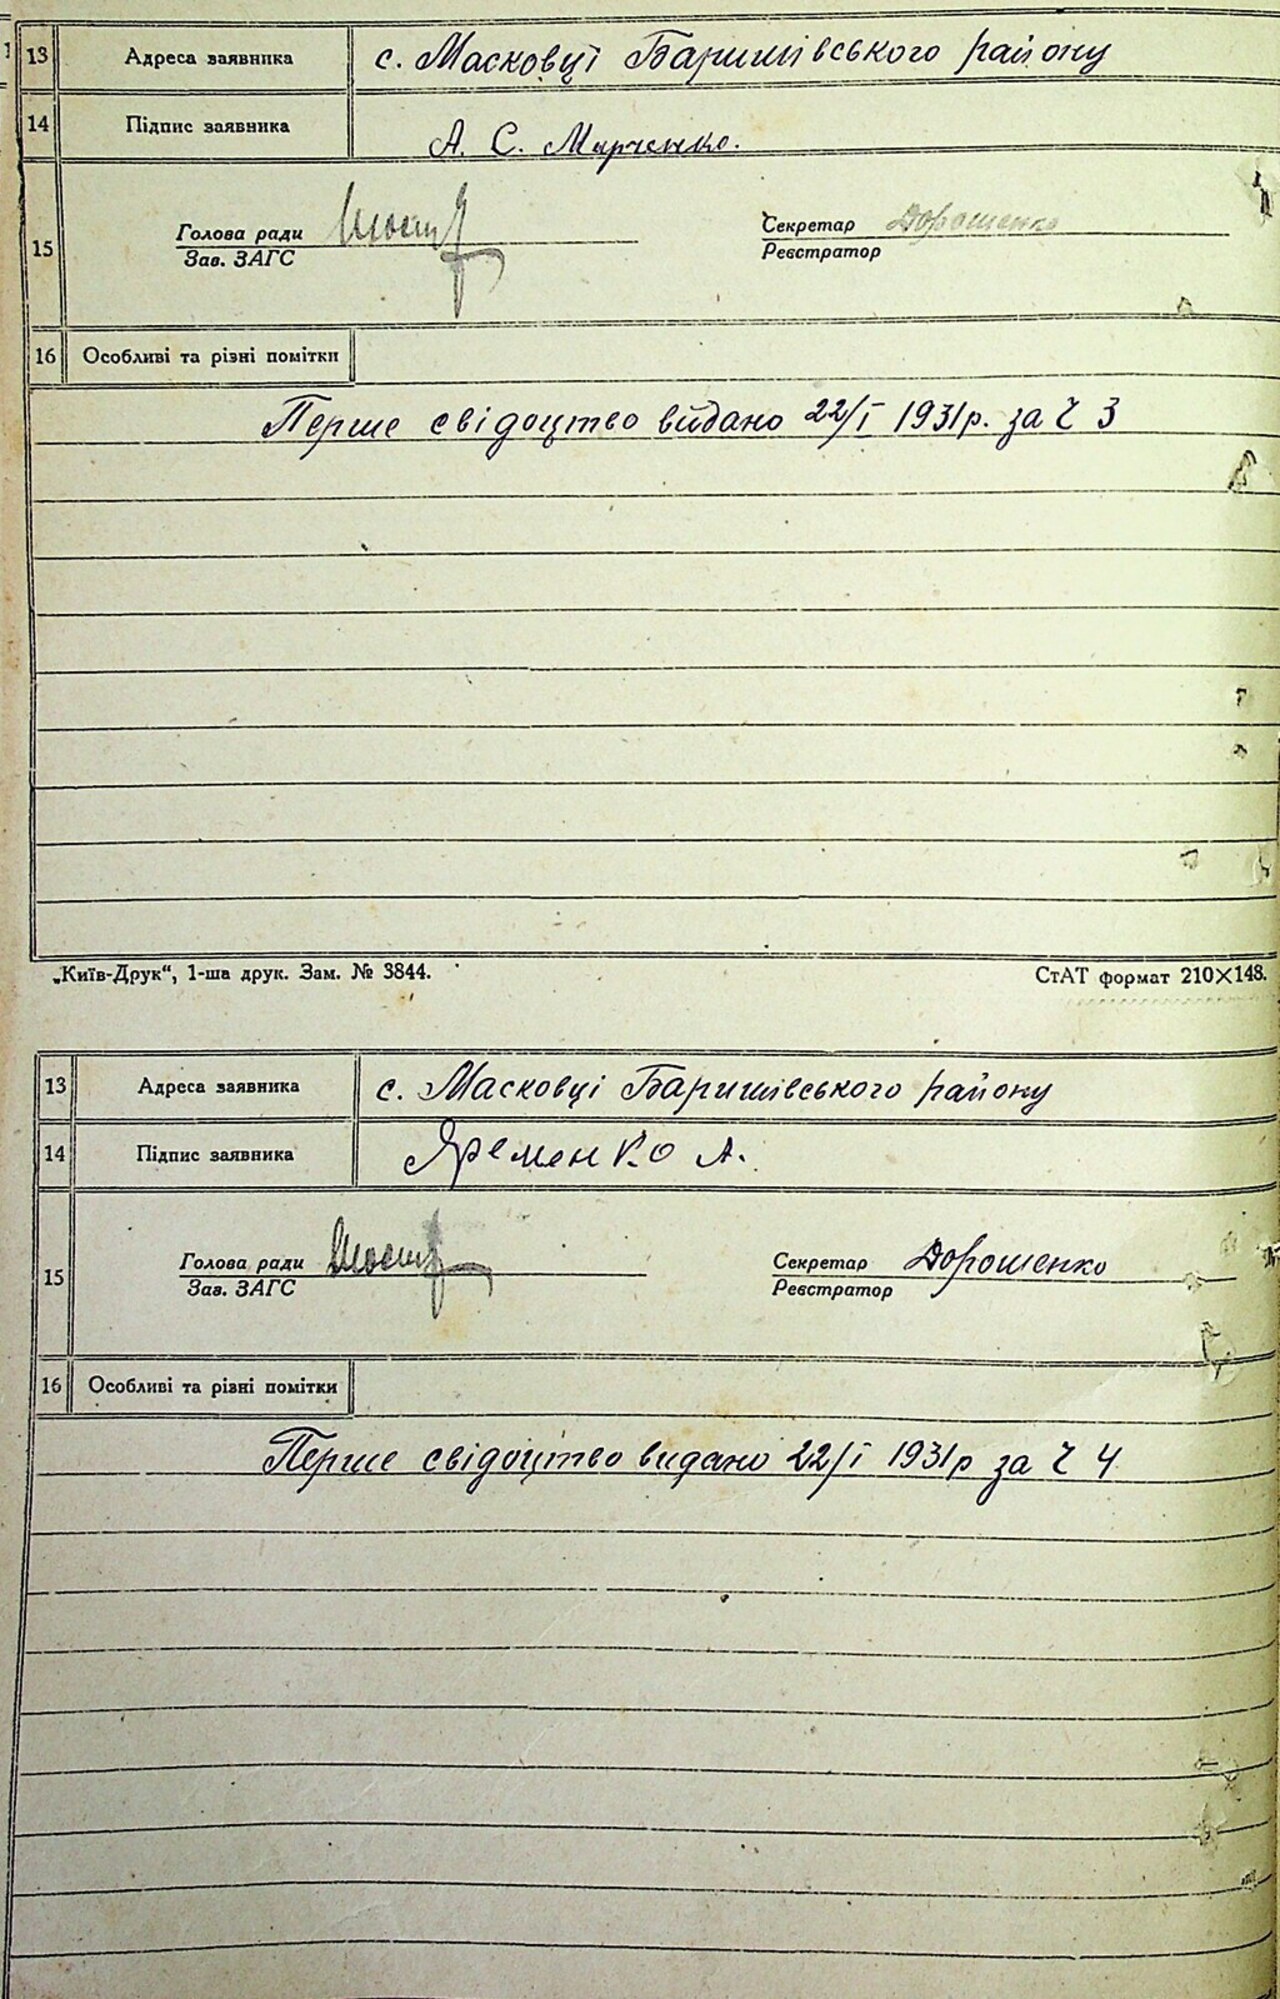 13 Адреса заявника с. Масковці Баришівського району
14 Підпис заявника А. С. Марченко.
15 Голова ради Секретар Дорошенко
Зав. ЗАГС Реєстратор
16 Особливі та різні помітки
Перше свідоцтво видано 22/I 1931р. за Ч 3
„Київ-Друк“, 1-ша друк. Зам. № 3844. СтАТ формат 210×148.
13 Адреса заявника с. Масковці Баришівського району
14 Підпис заявника Яременко А.
15 Голова ради Секретар Дорошенко
Зав. ЗАГС Реєстратор
16 Особливі та різні помітки
Перше свідоцтво видано 22/I 1931р за Ч 4